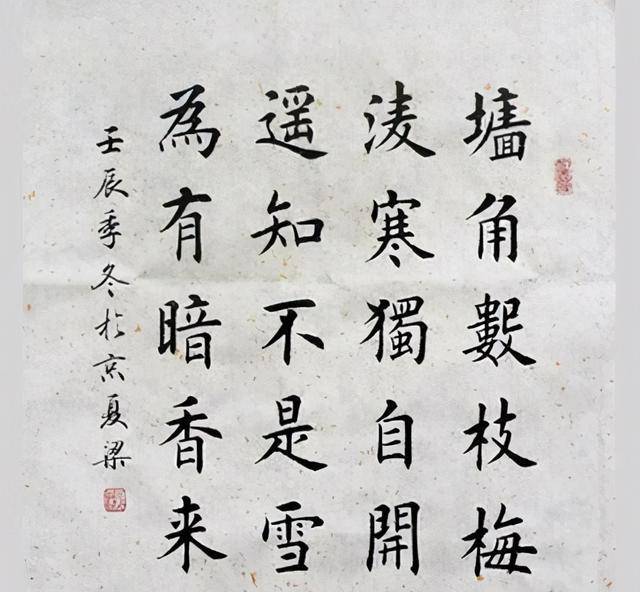 墙角數枝梅
凌寒獨自開
遥知不是雪
為有暗香来
壬辰季冬於京夏梁